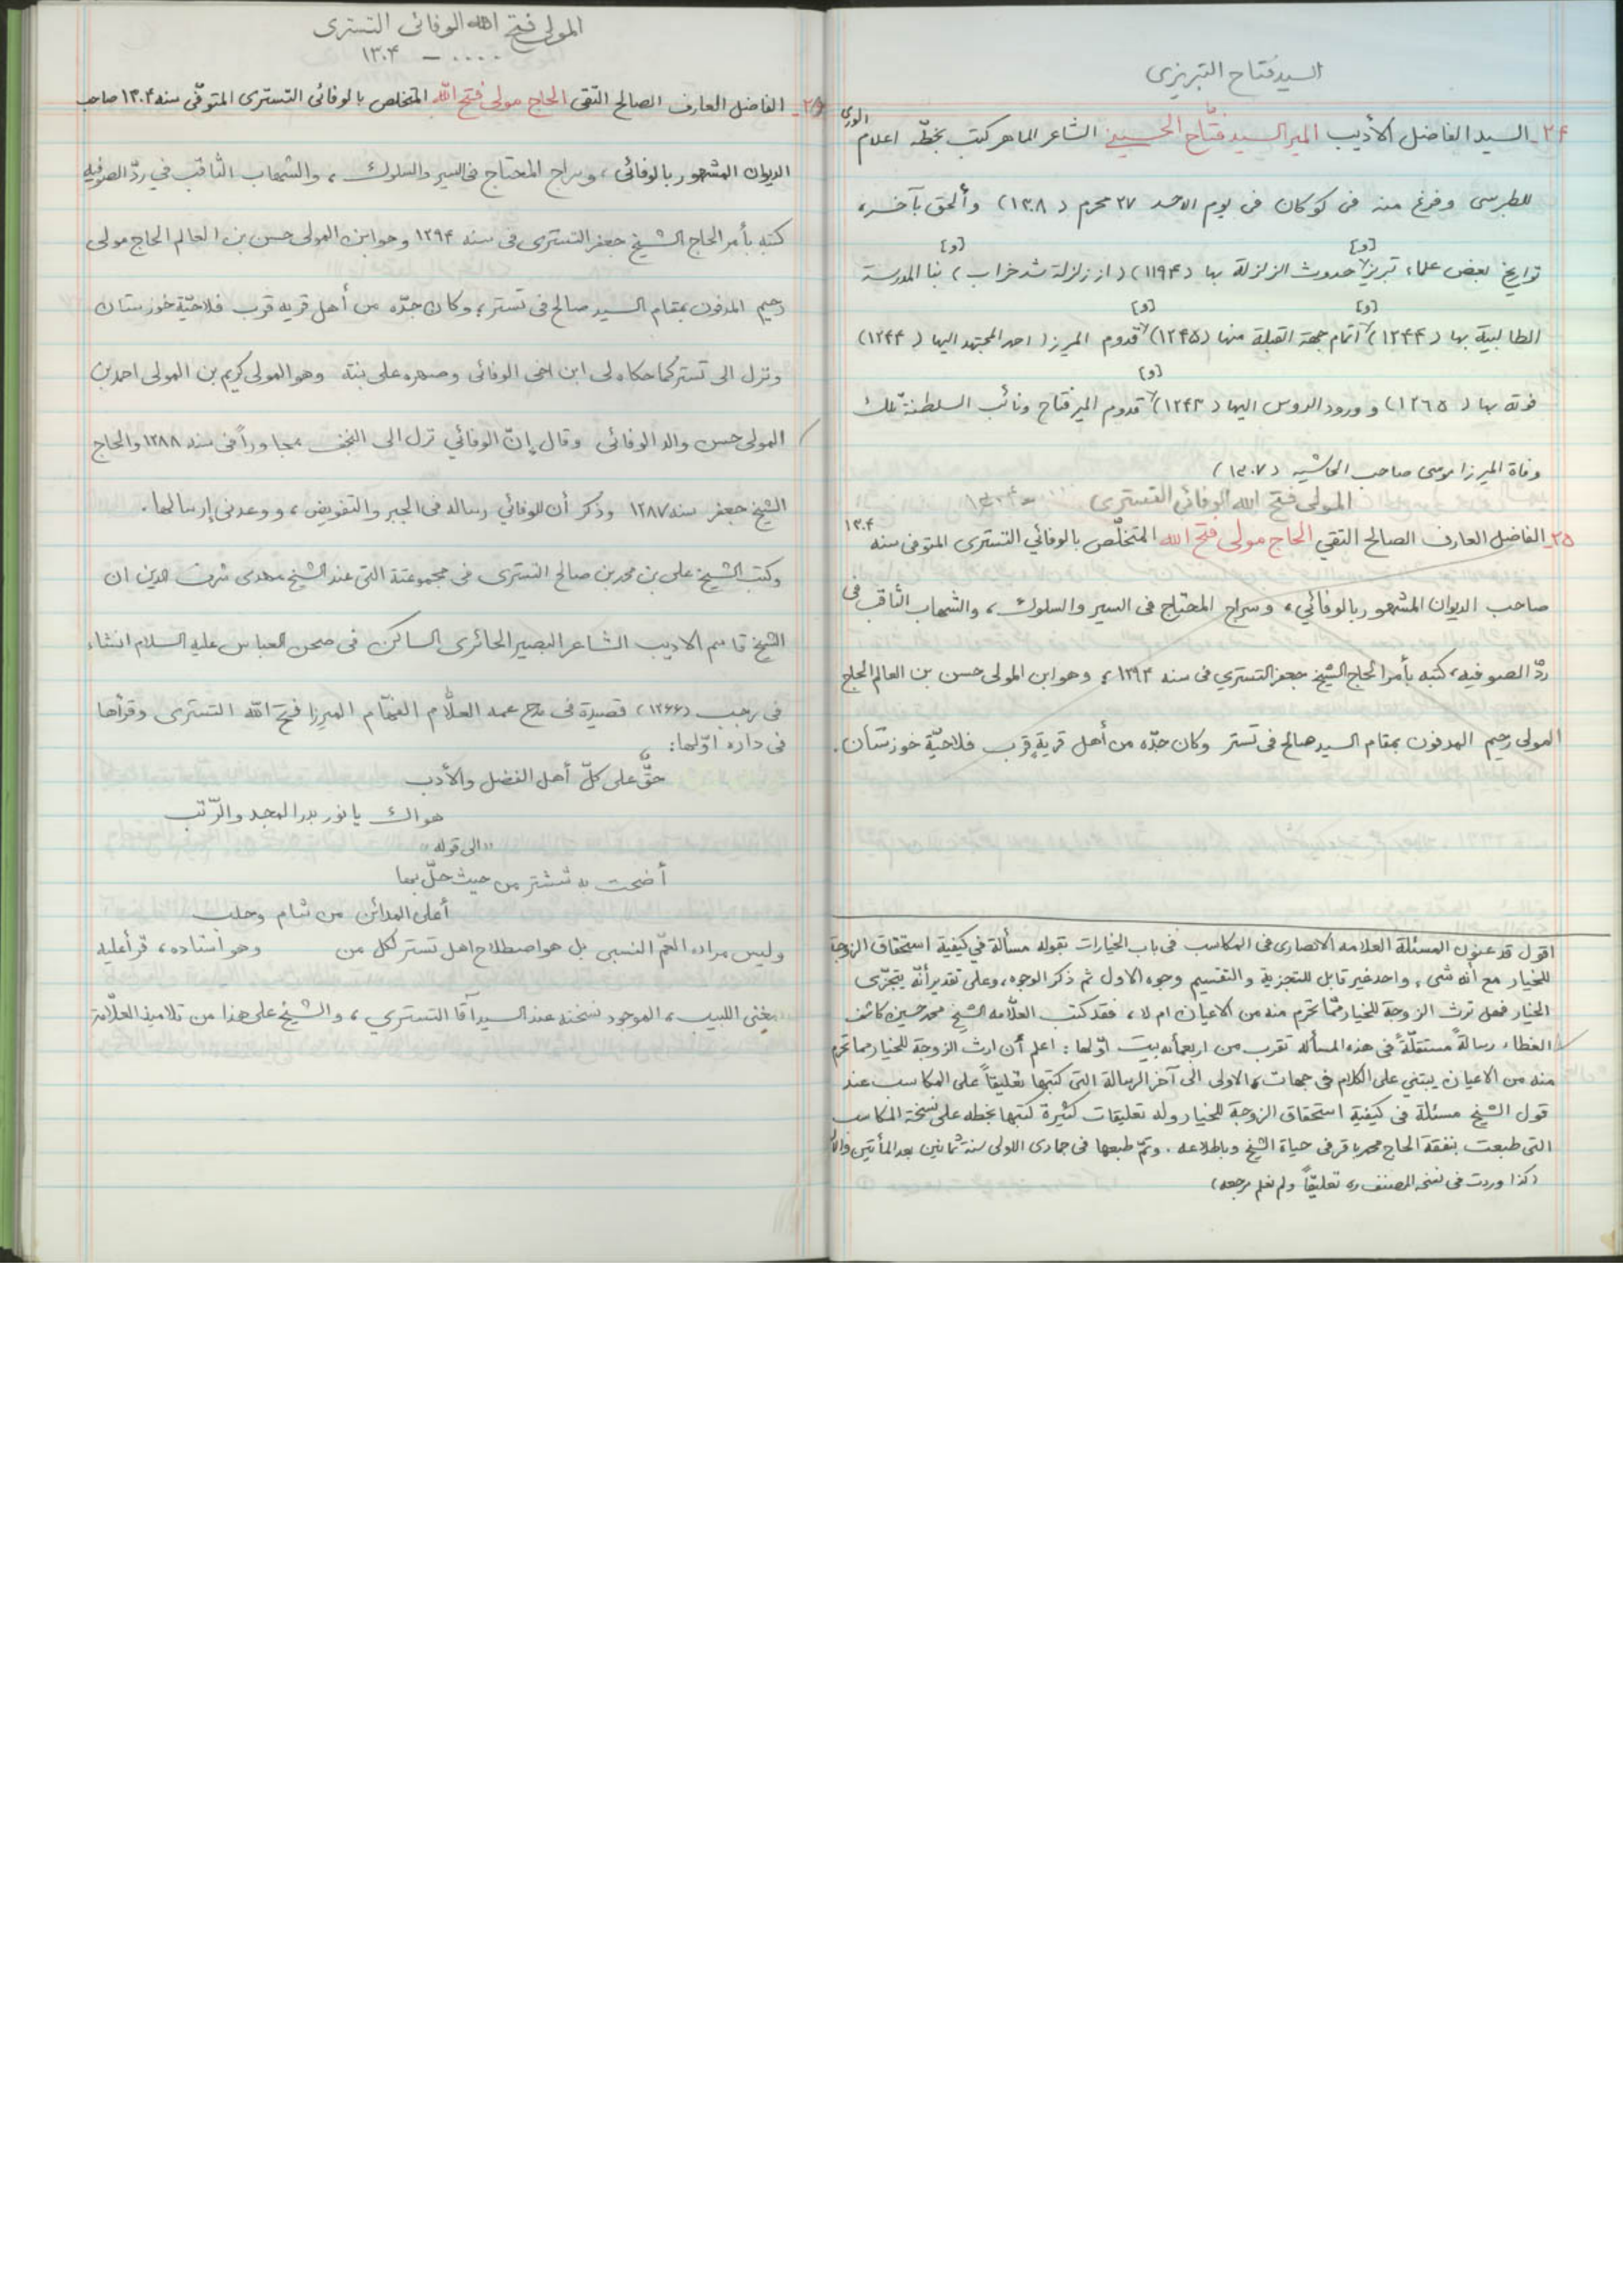 السيد فتاح التبريزى
٢۴ـ السيد الفاضل الأديب المير السيد فتّاح الحسيني الشاعر الماهر كتب بخطّه اعلام الورى
للطبرسى وفرغ منه فى كوكان فى يوم الاحد ٢٧ محرم (١٣٠٨) وألحق بآخره
[و] [و]
تواريخ بعض علماء تبريز حدوث الزلزلة بها (١١٩۴) (از زلزلة شد خراب) بنا المدرسة
[و] [و]
الطالبية بها (١٢۴۴) اتمام جهة القبلة منها (١٢۴۵) قدوم الميرزا احمد المجتهد اليها (١٢۴۴)
[و]
فوته بها (١٢٦۵) و ورود الروس اليها (١٢۴٣) قدوم المير فتاح ونائب السلطنة تلك
وفاة الميرزا موسى صاحب الحاشيه (١٣٠٧)
المولى فتح الله الوفائى التسترى .... ـ ١٣٠۴
٢۵ـ الفاضل العارف الصالح التقي الحاج مولى فتح الله المتخلّص بالوفائي التسترى المتوفى سنه ١٣٠۴
صاحب الديوان المشهور بالوفائي، وسراج المحتاج فى السير والسلوك، والشهاب الثاقب فى
ردّ الصوفيه، كتبه بأمر الحاج الشيخ جعفر التستري فى سنه ١٢٩۴، وهو ابن المولى حسن بن العالم الحاج
المولى رحيم المدفون بمقام السيد صالح فى تستر وكان جدّه من أهل قريةٍ قرب فلاحيّة خوزستان.
اقول قد عنون المسئلة العلامه الانصارى فى المكاسب فى باب الخيارات بقوله مسألة في كيفية استحقاق الزوجة
للخيار مع أنه شىء واحد غير قابل للتجزية والتقسيم وجوه الاول ثم ذكر الوجوه، وعلى تقدير أنّه يتجزّى
الخيار فهل ترث الزوجة للخيار ممّا تحرم منه من الاعيان ام لا، فقد كتب العلّامه الشيخ محمد حسين كاشف
الغطاء رسالةً مستقلّةً فى هذه المسأله تقرب من اربعمأه بيت اوّلها: اعلم أن ارث الزوجة للخيار مما تحرم
منه من الاعيان يبتني على الكلام فى جهات، الاولى الى آخر الرسالة التى كتبها تعليقاً على المكاسب عند
قول الشيخ مسئلة فى كيفية استحقاق الزوجة للخيار وله تعليقات كثيرة كتبها بخطه على نسخة المكاسب
التى طبعت بنفقة الحاج محمد باقر فى حياة الشيخ وباطلاعه. وتمّ طبعها فى جمادى الاولى سنة ثمانين بعد المأتين والالف
(كذا وردت فى نسخه المصنف ره تعليقاً ولم نعلم مرجعه)
المولى فتح الله الوفائى التسترى
.... ـ ١٣٠۴
الفاضل العارف الصالح التقى الحاج مولى فتح الله المتخلص بالوفائى التسترى المتوفّى سنه ١٣٠۴ صاحب
الديوان المشهور بالوفائى، وسراج المحتاج فى السير والسلوك، والشهاب الثّاقب في ردّ الصوفيه
كتبه بأمر الحاج الشيخ جعفر التسترى فى سنه ١٢٩۴ وهو ابن المولى حسن بن العالم الحاج مولى
رحيم المدفون بمقام السيد صالح فى تستر، وكان جدّه من أهل قريه قرب فلاحيّة خوزستان
ونزل الى تستر كما حكاه لى ابن اخى الوفائى وصهره على بنته وهو المولى كريم بن المولى احمد بن
المولى حسن والد الوفائى وقال إنّ الوفائي نزل الى النجف مجاوراً فى سنه ١٢٨٨ والحاج
الشيخ جعفر سنه ١٢٨٧ وذكر أن للوفائي رساله فى الجبر والتفويض، ووعدنى إرسالها.
وكتب الشيخ على بن محمد بن صالح التسترى فى مجموعته التى عند الشيخ مهدى شرف الدين ان
الشيخ قاسم الاديب الشاعر البصير الحائرى الساكن فى صحن العباس عليه السلام انشاء
فى رجب (١٢٦٦) قصيدة فى مدح عمه العلّام الفهّام الميرزا فتح الله التسترى وقرأها
فى داره اوّلها:
حقٌّ على كلّ أهل الفضل والأدب
هواك يا نور بدر المجد والرّتب
«الى قوله»
أضحت به تستر من حيث حلّ بها
أعلى المدائن من شام وحلب
وليس مراده العمّ النسبى بل هو اصطلاح اهل تستر لكل من وهو استاده، قرأ عليه
مغنى اللبيب، الموجود نسخته عند السيد آقا التستري، والشيخ على هذا من تلاميذ العلّامة